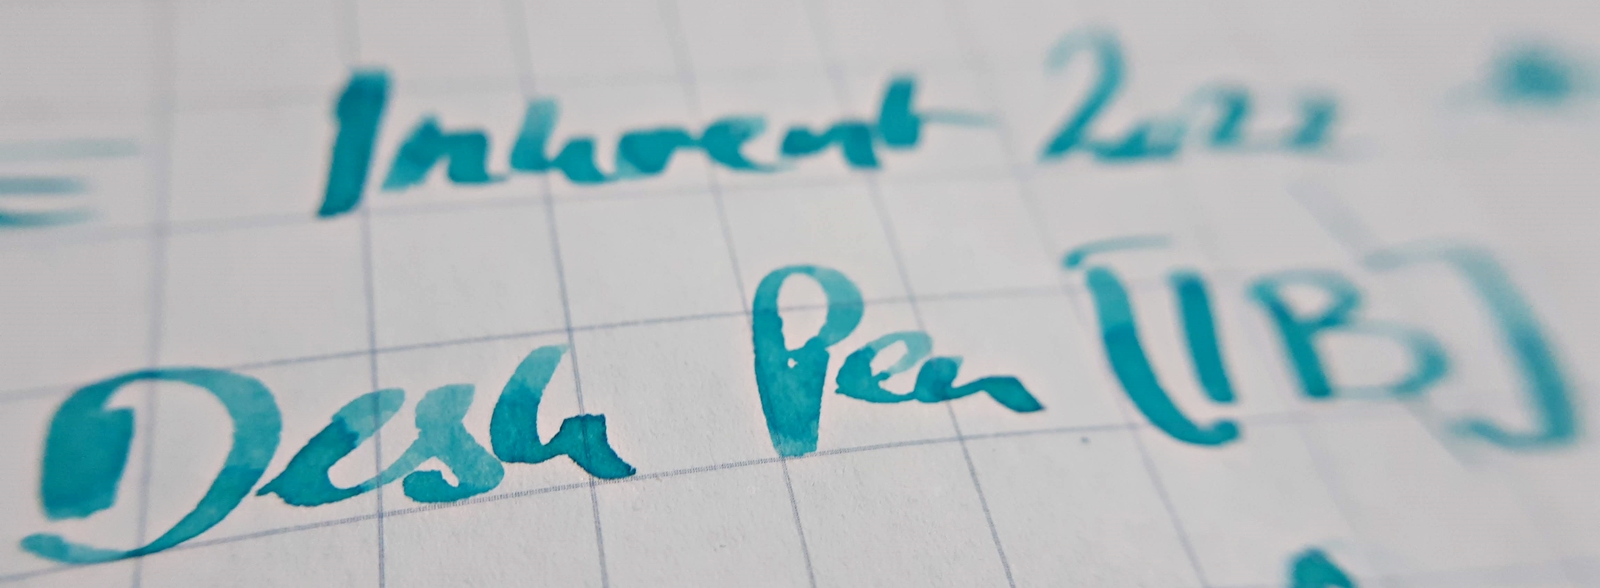 Inkvent 2022
Desk Pen [1B]